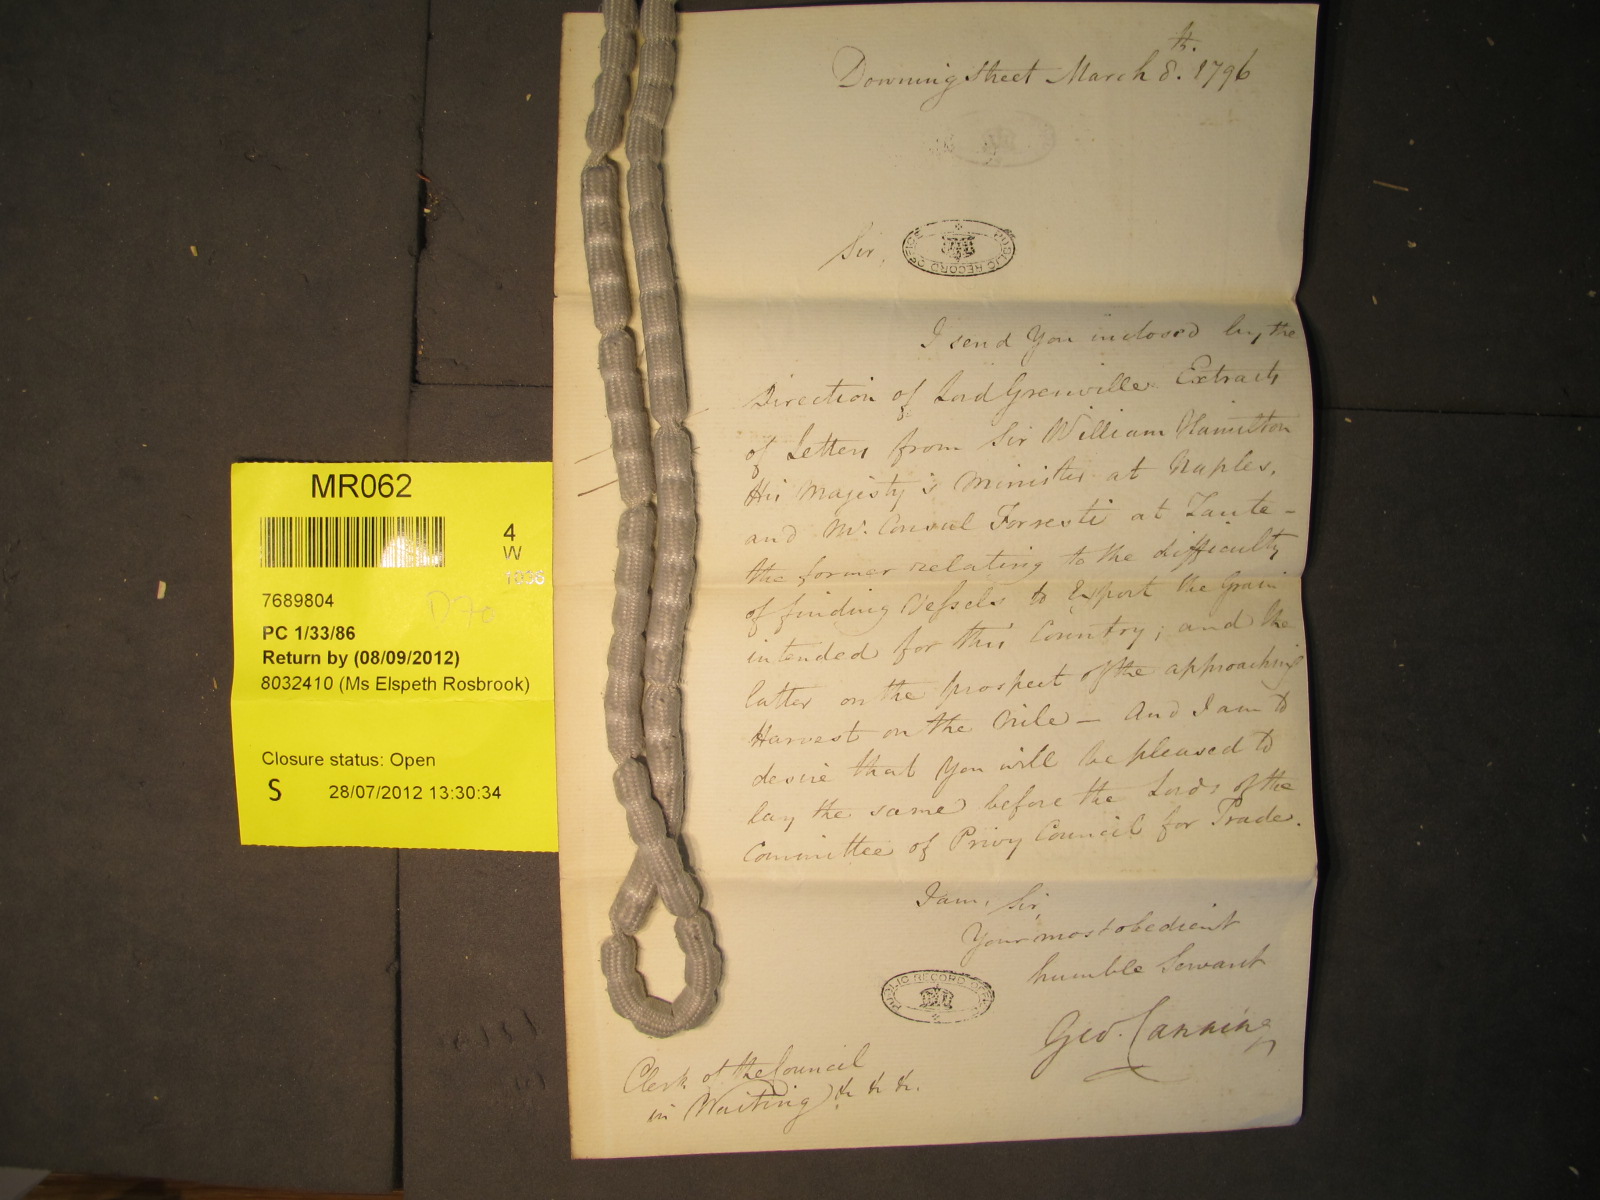 Downing Street March 8.th 1796
PUBLIC RECORD OFFICE
Sir,
I send You inclosed by the
Direction of Lord Grenville Extracts
of Letters from Sir William Hamilton
His Majesty's Minister at Naples,
and Mr. Consul Forresti at Zante –
the former relating to the difficulty
of finding Vessels to Export the Grain
intended for this Country; and the
latter on the prospect of the approaching
Harvest on the Nile – And I am to
desire that You will be pleased to
lay the same before the Lords of the
Committee of Privy Council for Trade.
I am, Sir,
Your most obedient
humble Servant
PUBLIC RECORD OFFICE
Geo. Canning
Clerk of the Council
in Waiting &c &c &c.
MR062
4
W
1036
7689804
D70
PC 1/33/86
Return by (08/09/2012)
8032410 (Ms Elspeth Rosbrook)
Closure status: Open
S 28/07/2012 13:30:34